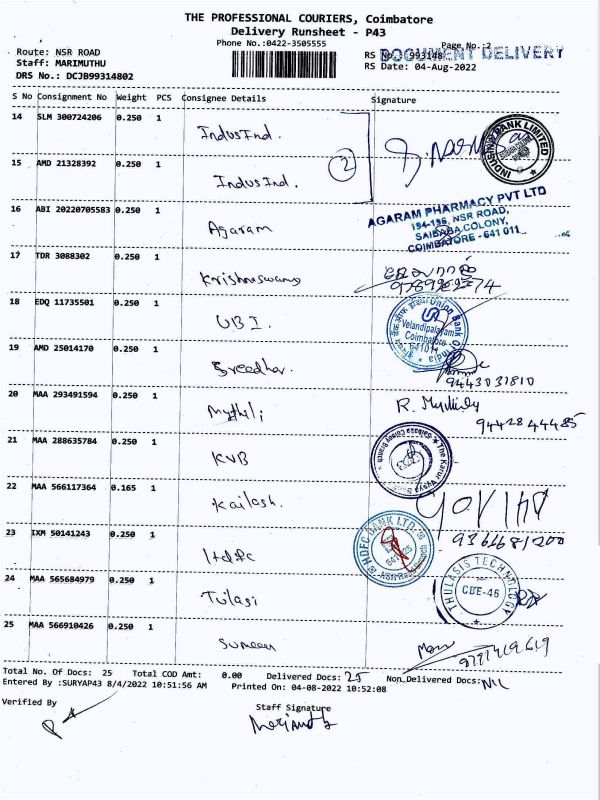 THE PROFESSIONAL COURIERS, Coimbatore
Delivery Runsheet - P43
Phone No.:0422-3505555
Page No.:2
DOCUMENT DELIVERY
Route: NSR ROAD
Staff: MARIMUTHU
DRS No.: DCJB99314802
RS No.: 993148
RS Date: 04-Aug-2022
S No Consignment No Weight PCS Consignee Details Signature
14 SLM 300724206 0.250 1
IndusInd.
INDUSIND BANK LIMITED
15 AMD 21328392 0.250 1
2
IndusInd.
16 ABI 20220705583 0.250 1
Agaram
AGARAM PHARMACY PVT LTD
194-196, NSR ROAD,
SAIBABA COLONY,
COIMBATORE - 641 011
17 TDR 3088302 0.250 1
Krishnaswamy
18 EDQ 11735501 0.250 1
UBI.
Union Bank Of India
Velandipalayam
Coimbatore
641011
19 AMD 25014170 0.250 1
Sreedhar.
9443031810
20 MAA 293491594 0.250 1
Mythili
R. Mythily
9442844485
21 MAA 288635784 0.250 1
KVB
The Karur Vysya Bank
22 MAA 566117364 0.165 1
Kailash.
9366681200
23 IXM 50141243 0.250 1
Hdfc
HDFC BANK LTD.
24 MAA 565684979 0.250 1
Tulasi
THULASIS TECHNOLOGY
CBE-46
25 MAA 566910426 0.250 1
Sumeer
Total No. Of Docs: 25 Total COD Amt: 0.00 Delivered Docs: 25 Non Delivered Docs: NIL
Entered By :SURYAP43 8/4/2022 10:51:56 AM Printed On: 04-08-2022 10:52:08
Verified By
Staff Signature